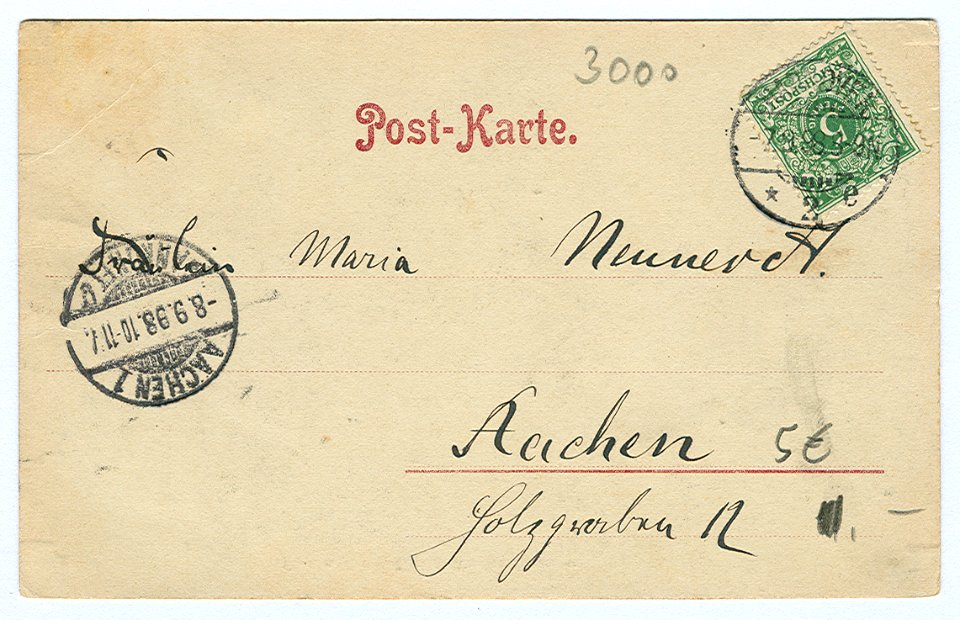 3000
Post-Karte.
REICHSPOST
5
* 2 e
Fräulein Maria
-8.9.98.10-11V.
AACHEN 1
Aachen 5€
Holzgraben 12